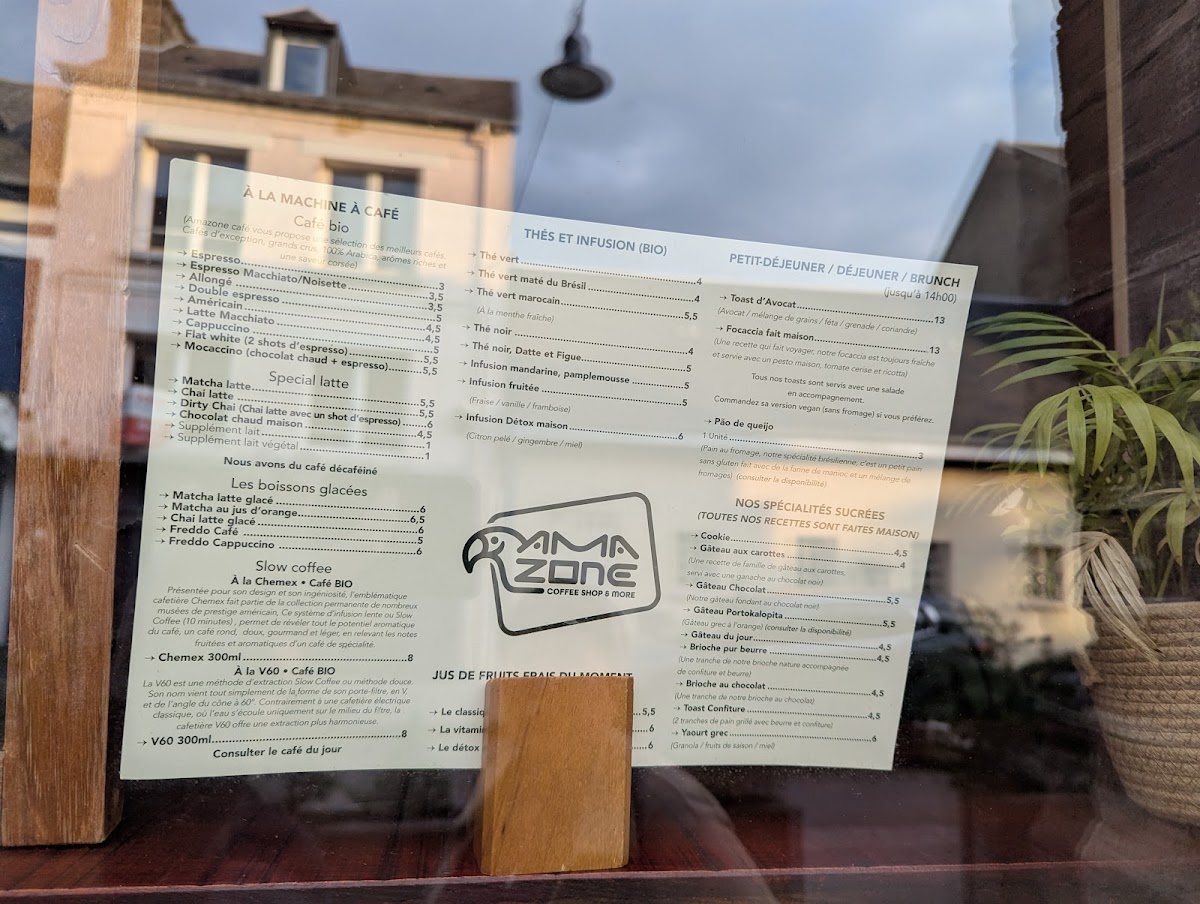 À LA MACHINE À CAFÉ
Café bio
(Amazone café vous propose une sélection des meilleurs cafés.
Cafés d'exception, grands crus, 100% Arabica, arômes riches et
une saveur corsée)
→ Espresso...3
→ Espresso Macchiato/Noisette...3,5
→ Allongé...3,5
→ Double espresso...5
→ Américain...4,5
→ Latte Macchiato...4,5
→ Cappuccino...5
→ Flat white (2 shots d'espresso)...5,5
→ Mocaccino (chocolat chaud + espresso)...5,5
Special latte
→ Matcha latte...5,5
→ Chai latte...5,5
→ Dirty Chai (Chai latte avec un shot d'espresso)...6
→ Chocolat chaud maison...4,5
→ Supplément lait...1
→ Supplément lait végétal...1
Nous avons du café décaféiné
Les boissons glacées
→ Matcha latte glacé...6
→ Matcha au jus d'orange...6,5
→ Chai latte glacé...6
→ Freddo Café...5
→ Freddo Cappuccino...6
Slow coffee
À la Chemex • Café BIO
Présentée pour son design et son ingéniosité, l'emblématique
cafetière Chemex fait partie de la collection permanente de nombreux
musées de prestige américain, Ce système d'infusion lente ou Slow
Coffee (10 minutes) , permet de révéler tout le potentiel aromatique
du café, un café rond, doux, gourmand et léger, en relevant les notes
fruitées et aromatiques d'un café de spécialité.
→ Chemex 300ml...8
À la V60 • Café BIO
La V60 est une méthode d'extraction Slow Coffee ou méthode douce.
Son nom vient tout simplement de la forme de son porte-filtre, en V.
et de l'angle du cône à 60°. Contrairement à une cafetière électrique
classique, où l'eau s'écoule uniquement sur le milieu du filtre, la
cafetière V60 offre une extraction plus harmonieuse.
→ V60 300ml...8
Consulter le café du jour
THÉS ET INFUSION (BIO)
→ Thé vert...4
→ Thé vert maté du Brésil...4
→ Thé vert marocain...5,5
(A la menthe fraîche)
→ Thé noir...4
→ Thé noir, Datte et Figue...5
→ Infusion mandarine, pamplemousse...5
→ Infusion fruitée...5
(Fraise / vanille / framboise)
→ Infusion Détox maison...6
(Citron pelé / gingembre / miel)
AMA
ZONE
COFFEE SHOP & MORE
JUS DE FRUITS FRAIS DU MOMENT
→ Le classiq 5,5
→ La vitamin 6
→ Le détox 6
PETIT-DÉJEUNER / DÉJEUNER / BRUNCH
(jusqu'à 14h00)
→ Toast d'Avocat...13
(Avocat / mélange de grains / féta / grenade / coriandre)
→ Focaccia fait maison...13
(Une recette qui fait voyager, notre focaccia est toujours fraîche
et servie avec un pesto maison, tomate cerise et ricotta)
Tous nos toasts sont servis avec une salade
en accompagnement.
Commandez sa version vegan (sans fromage) si vous préférez.
→ Pão de queijo
1 Unité...3
(Pain au fromage, notre spécialité brésilienne, c'est un petit pain
sans gluten fait avec de la farine de manioc et un mélange de
fromages) (consulter la disponibilité)
NOS SPÉCIALITÉS SUCRÉES
(TOUTES NOS RECETTES SONT FAITES MAISON)
→ Cookie...4,5
→ Gâteau aux carottes...4
(Une recette de famille de gâteau aux carottes,
servi avec une ganache au chocolat noir)
→ Gâteau Chocolat...5,5
(Notre gâteau fondant au chocolat noir)
→ Gâteau Portokalopita...5,5
(Gâteau grec à l'orange) (consulter la disponibilité)
→ Gâteau du jour...4,5
→ Brioche pur beurre...4,5
(Une tranche de notre brioche nature accompagnée
de confiture et beurre)
→ Brioche au chocolat...4,5
(Une tranche de notre brioche au chocolat)
→ Toast Confiture...4,5
(2 tranches de pain grillé avec beurre et confiture)
→ Yaourt grec...6
(Granola / fruits de saison / miel)